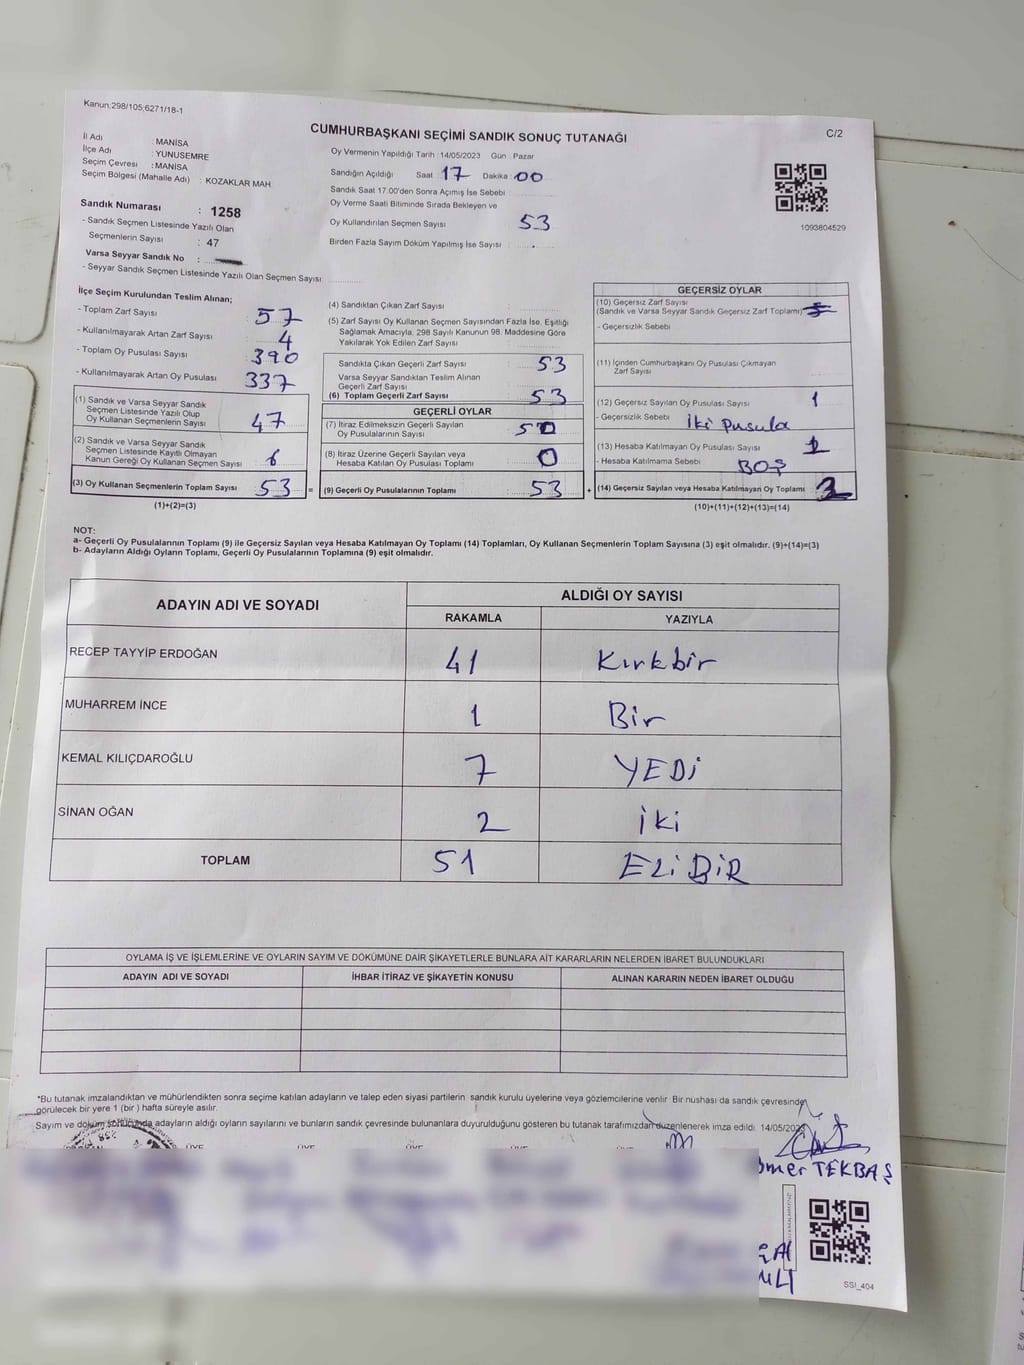 Kanun;298/105;6271/18-1
CUMHURBAŞKANI SEÇİMİ SANDIK SONUÇ TUTANAĞI
C/2
İl Adı : MANİSA
İlçe Adı : YUNUSEMRE
Seçim Çevresi : MANİSA
Seçim Bölgesi (Mahalle Adı) : KOZAKLAR MAH.
Sandık Numarası : 1258
- Sandık Seçmen Listesinde Yazılı Olan
Seçmenlerin Sayısı : 47
Varsa Seyyar Sandık No :
- Seyyar Sandık Seçmen Listesinde Yazılı Olan Seçmen Sayısı
Oy Vermenin Yapıldığı Tarih :14/05/2023 Gün : Pazar
Sandığın Açıldığı Saat 17 Dakika 00
Sandık Saat 17:00'den Sonra Açımış İse Sebebi
Oy Verme Saati Bitiminde Sırada Bekleyen ve
Oy Kullandırılan Seçmen Sayısı 53
Birden Fazla Sayım Döküm Yapılmış İse Sayısı :
1093804529
İlçe Seçim Kurulundan Teslim Alınan;
- Toplam Zarf Sayısı : 57
- Kullanılmayarak Artan Zarf Sayısı : 4
- Toplam Oy Pusulası Sayısı : 390
- Kullanılmayarak Artan Oy Pusulası : 337
(1) Sandık ve Varsa Seyyar Sandık
Seçmen Listesinde Yazılı Olup
Oy Kullanan Seçmenlerin Sayısı : 47
(2) Sandık ve Varsa Seyyar Sandık
Seçmen Listesinde Kayıtlı Olmayan
Kanun Gereği Oy Kullanan Seçmen Sayısı : 6
(3) Oy Kullanan Seçmenlerin Toplam Sayısı : 53
(1)+(2)=(3)
=
(4) Sandıktan Çıkan Zarf Sayısı :
(5) Zarf Sayısı Oy Kullanan Seçmen Sayısından Fazla İse, Eşitliği
Sağlamak Amacıyla, 298 Sayılı Kanunun 98. Maddesine Göre
Yakılarak Yok Edilen Zarf Sayısı :
Sandıkta Çıkan Geçerli Zarf Sayısı : 53
Varsa Seyyar Sandıktan Teslim Alınan
Geçerli Zarf Sayısı :
(6) Toplam Geçerli Zarf Sayısı : 53
GEÇERLİ OYLAR
(7) İtiraz Edilmeksizin Geçerli Sayılan
Oy Pusulalarının Sayısı :
(8) İtiraz Üzerine Geçerli Sayılan veya
Hesaba Katılan Oy Pusulası Toplamı : 0
(9) Geçerli Oy Pusulalarının Toplamı : 53
+
GEÇERSİZ OYLAR
(10) Geçersiz Zarf Sayısı
(Sandık ve Varsa Seyyar Sandık Geçersiz Zarf Toplamı)
- Geçersizlik Sebebi
(11) İçinden Cumhurbaşkanı Oy Pusulası Çıkmayan
Zarf Sayısı :
(12) Geçersiz Sayılan Oy Pusulası Sayısı : 1
- Geçersizlik Sebebi : İki Pusula
(13) Hesaba Katılmayan Oy Pusulası Sayısı :
- Hesaba Katılmama Sebebi : BOŞ
(14) Geçersiz Sayılan veya Hesaba Katılmayan Oy Toplamı :
(10)+(11)+(12)+(13)=(14)
NOT:
a- Geçerli Oy Pusulalarının Toplamı (9) ile Geçersiz Sayılan veya Hesaba Katılmayan Oy Toplamı (14) Toplamları, Oy Kullanan Seçmenlerin Toplam Sayısına (3) eşit olmalıdır. (9)+(14)=(3)
b- Adayların Aldığı Oyların Toplamı, Geçerli Oy Pusulalarının Toplamına (9) eşit olmalıdır.
ADAYIN ADI VE SOYADI
ALDIĞI OY SAYISI
RAKAMLA YAZIYLA
RECEP TAYYİP ERDOĞAN 41 Kırkbir
MUHARREM İNCE 1 Bir
KEMAL KILIÇDAROĞLU 7 YEDİ
SİNAN OĞAN 2 İki
TOPLAM 51 ELİ BİR
OYLAMA İŞ VE İŞLEMLERİNE VE OYLARIN SAYIM VE DÖKÜMÜNE DAİR ŞİKAYETLERLE BUNLARA AİT KARARLARIN NELERDEN İBARET BULUNDUKLARI
ADAYIN ADI VE SOYADI İHBAR İTİRAZ VE ŞİKAYETİN KONUSU ALINAN KARARIN NEDEN İBARET OLDUĞU
*Bu tutanak imzalandıktan ve mühürlendikten sonra seçime katılan adayların ve talep eden siyasi partilerin sandık kurulu üyelerine veya gözlemcilerine verilir. Bir nüshası da sandık çevresinde
görülecek bir yere 1 (bir ) hafta süreyle asılır.
Sayım ve döküm sonucunda adayların aldığı oyların sayılarını ve bunların sandık çevresinde bulunanlara duyurulduğunu gösteren bu tutanak tarafımızdan düzenlenerek imza edildi. 14/05/2023
TEKBAŞ
SSI_404